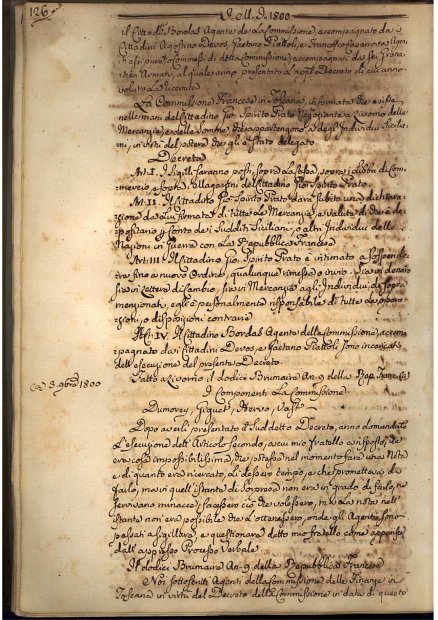 126
J.M.J. 1800
il Cittadino Bordas Agente della Commissione, accompagnato da
Cittadini Agostino Devos, Gaetano Piattoli, e Francesco Casanova Agen,
ti oppure Commessi di detta Commissione, accompagnati da sei Grana,
tieri Armati, al quale anno presentato
voluto la Ricevuta
La Commissione Francese in Toscana, informata che esiste
nelle mani del Cittadino Gio: Spirito Prato Negoziante a Livorno delle
Mercanzie, e delle Somme che appartengono a degli Individui Sicilia,
ni, in virtù del potere che gli è stato delegato
Decreta
Art: I. I Sigilli saranno posti sopra la Cassa, sopra i Libri di Com,
mercio, e sopra i Magazzini del Cittadino Gio: Spirito Prato
Art: II. Il Cittadino Gio: Spirito Prato darà subito una dichiara,
zione da lui firmata di tutte le Mercanzie, e valute di che è de,
positario per Conto dei Sudditi Siciliani, o altri Individui delle
Nazioni in Guerra con la Repubblica Francese
Art: III. Il Cittadino Gio: Spirito Prato è intimato a sospende,
re fino a nuovo Ordine, qualunque rimessa o invio, sia in denaro
sia in Lettere di Cambio, sia in Mercanzie agli Individui di sopra
menzionati, egli è personalmente risponsabile di tutte le opera,
zioni, o disposizioni contrarie
Art: IV. Il Cittadino Bordas Agente della Commissione, accom,
pagnato dai Cittadini Devos, e Gaetano Piattoli sono incaricati
dell'esecuzione del presente Decreto
Fatto a Livorno il dodici Brumaire An. 9 della Rep. Franc.
3. 9bre 1800
I Componenti La Commissione
Dumorey, Hervo,
Dopo averli presentato il Suddetto Decreto, anno domandato
l'esecuzione dell'Articolo secondo, a cui mio fratello à risposto, che
era cosa impossibilissima, che potesse nel momento fare una Nota
di quanto era ricercato, li dessero tempo, e che prometteva di
farlo, ma in quell'istante di sorpresa non era in grado di farlo,
minacce, facessero ciò che volessero, ma la nota nell'
istante non era possibile che l'ottenessero, onde gli Agenti sono
passati a sigillare, e questionare detto mio fratello come apparisce
dall'appresso Processo Verbale
Il dodici Brumaire An. 9 della Repubblica Francese
Noi sottoscritti Agenti della Commissione delle Finanze in
Toscana in virtù del Decreto della Commissione in data di questo